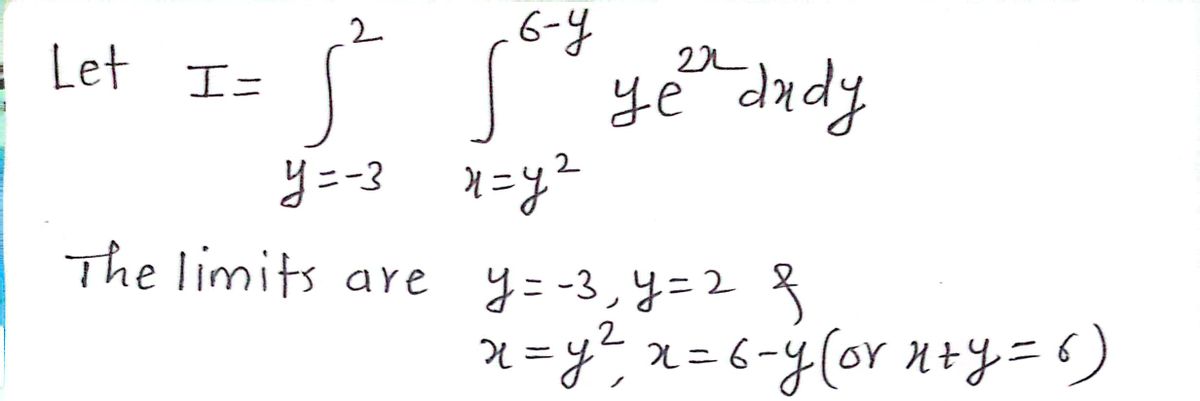 Let I = ∫_{y=-3}^{2} ∫_{x=y²}^{6-y} ye^{2x} dxdy
The limits are y=-3, y=2 &
x=y², x=6-y (or x+y=6)